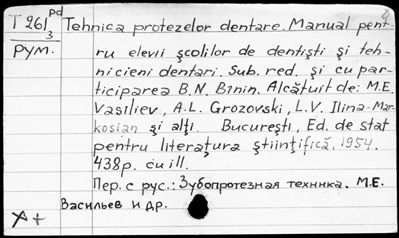 T 261 pd Tehnica protezelor dentare. Manual pent-
3
рум. ru elevii şcolilor de dentişti şi teh-
nicieni dentari. Sub. red. şi cu par-
ticiparea B.N. Bînin. Alcătuit de: M.E.
Vasiliev, A.L. Grozovski, L.V. Ilina-Mar-
kosian şi alţi. Bucureşti, Ed. de stat
pentru literaţura ştiinţifică, 1954.
438p. cu ill.
Пер. с рус.: Зубопротезная техника. М.Е.
Васильев и др.